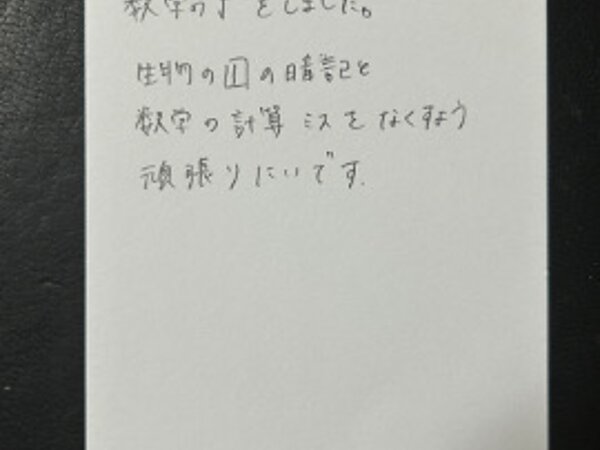 数学の
をしました。
生物の図の暗記と
数学の計算ミスをなくすよう
頑張りたいです.